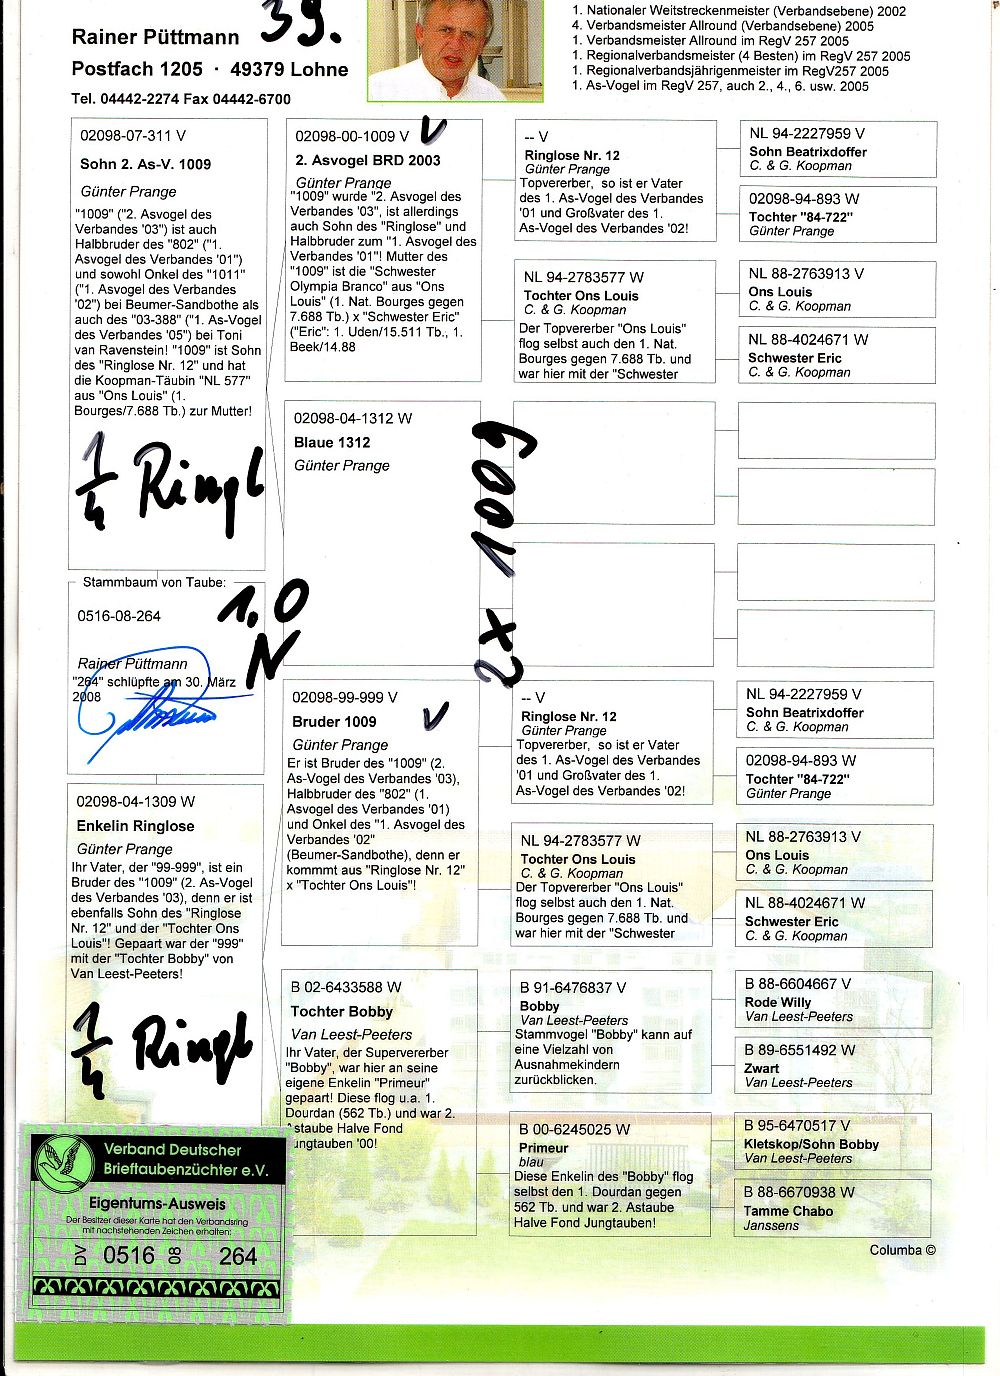 Rainer Püttmann
39.
Postfach 1205 · 49379 Lohne
Tel. 04442-2274 Fax 04442-6700
1. Nationaler Weitstreckenmeister (Verbandsebene) 2002
4. Verbandsmeister Allround (Verbandsebene) 2005
1. Verbandsmeister Allround im RegV 257 2005
1. Regionalverbandsmeister (4 Besten) im RegV 257 2005
1. Regionalverbandsjährigenmeister im RegV257 2005
1. As-Vogel im RegV 257, auch 2., 4., 6. usw. 2005
02098-07-311 V
Sohn 2. As-V. 1009
Günter Prange
"1009" ("2. Asvogel des
Verbandes '03") ist auch
Halbbruder des "802" ("1.
Asvogel des Verbandes '01")
und sowohl Onkel des "1011"
("1. Asvogel des Verbandes
'02") bei Beumer-Sandbothe als
auch des "03-388" ("1. As-Vogel
des Verbandes '05") bei Toni
van Ravenstein! "1009" ist Sohn
des "Ringlose Nr. 12" und hat
die Koopman-Täubin "NL 577"
aus "Ons Louis" (1.
Bourges/7.688 Tb.) zur Mutter!
1/4 Ringl
Stammbaum von Taube:
0516-08-264
1,0
N
Rainer Püttmann
"264" schlüpfte am 30. März
2008
02098-04-1309 W
Enkelin Ringlose
Günter Prange
Ihr Vater, der "99-999", ist ein
Bruder des "1009" (2. As-Vogel
des Verbandes '03), denn er ist
ebenfalls Sohn des "Ringlose
Nr. 12" und der "Tochter Ons
Louis"! Gepaart war der "999"
mit der "Tochter Bobby" von
Van Leest-Peeters!
1/4 Ringl
02098-00-1009 V
V
2. Asvogel BRD 2003
Günter Prange
"1009" wurde "2. Asvogel des
Verbandes '03", ist allerdings
auch Sohn des "Ringlose" und
Halbbruder zum "1. Asvogel des
Verbandes '01"! Mutter des
"1009" ist die "Schwester
Olympia Branco" aus "Ons
Louis" (1. Nat. Bourges gegen
7.688 Tb.) x "Schwester Eric"
("Eric": 1. Uden/15.511 Tb., 1.
Beek/14.88
02098-04-1312 W
Blaue 1312
Günter Prange
2x 1009
02098-99-999 V
V
Bruder 1009
Günter Prange
Er ist Bruder des "1009" (2.
As-Vogel des Verbandes '03),
Halbbruder des "802" (1.
Asvogel des Verbandes '01)
und Onkel des "1. Asvogel des
Verbandes '02"
(Beumer-Sandbothe), denn er
kommmt aus "Ringlose Nr. 12"
x "Tochter Ons Louis"!
B 02-6433588 W
Tochter Bobby
Van Leest-Peeters
Ihr Vater, der Supervererber
"Bobby", war hier an seine
eigene Enkelin "Primeur"
gepaart! Diese flog u.a. 1.
Dourdan (562 Tb.) und war 2.
Astaube Halve Fond
Jungtauben '00!
-- V
Ringlose Nr. 12
Günter Prange
Topvererber, so ist er Vater
des 1. As-Vogel des Verbandes
'01 und Großvater des 1.
As-Vogel des Verbandes '02!
NL 94-2783577 W
Tochter Ons Louis
C. & G. Koopman
Der Topvererber "Ons Louis"
flog selbst auch den 1. Nat.
Bourges gegen 7.688 Tb. und
war hier mit der "Schwester
-- V
Ringlose Nr. 12
Günter Prange
Topvererber, so ist er Vater
des 1. As-Vogel des Verbandes
'01 und Großvater des 1.
As-Vogel des Verbandes '02!
NL 94-2783577 W
Tochter Ons Louis
C. & G. Koopman
Der Topvererber "Ons Louis"
flog selbst auch den 1. Nat.
Bourges gegen 7.688 Tb. und
war hier mit der "Schwester
B 91-6476837 V
Bobby
Van Leest-Peeters
Stammvogel "Bobby" kann auf
eine Vielzahl von
Ausnahmekindern
zurückblicken.
B 00-6245025 W
Primeur
blau
Diese Enkelin des "Bobby" flog
selbst den 1. Dourdan gegen
562 Tb. und war 2. Astaube
Halve Fond Jungtauben!
NL 94-2227959 V
Sohn Beatrixdoffer
C. & G. Koopman
02098-94-893 W
Tochter "84-722"
Günter Prange
NL 88-2763913 V
Ons Louis
C. & G. Koopman
NL 88-4024671 W
Schwester Eric
C. & G. Koopman
NL 94-2227959 V
Sohn Beatrixdoffer
C. & G. Koopman
02098-94-893 W
Tochter "84-722"
Günter Prange
NL 88-2763913 V
Ons Louis
C. & G. Koopman
NL 88-4024671 W
Schwester Eric
C. & G. Koopman
B 88-6604667 V
Rode Willy
Van Leest-Peeters
B 89-6551492 W
Zwart
Van Leest-Peeters
B 95-6470517 V
Kletskop/Sohn Bobby
Van Leest-Peeters
B 88-6670938 W
Tamme Chabo
Janssens
Columba ©
Verband Deutscher
Brieftaubenzüchter e.V.
Eigentums-Ausweis
Der Besitzer dieser Karte hat den Verbandsring
mit nachstehenden Zeichen erhalten:
DV 0516 08 264